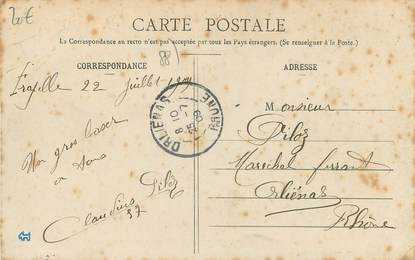 20€
CARTE POSTALE
La Correspondance au recto n'est pas acceptée par tous les Pays étrangers. (Se renseigner à la Poste.)
CORRESPONDANCE
ADRESSE
22 Juillet
Un gros baiser
a tous
Claudius Piloz
ORLIENAS
RHONE
Monsieur
Piloz
Marechal ferrant
Orliénas
Rhône